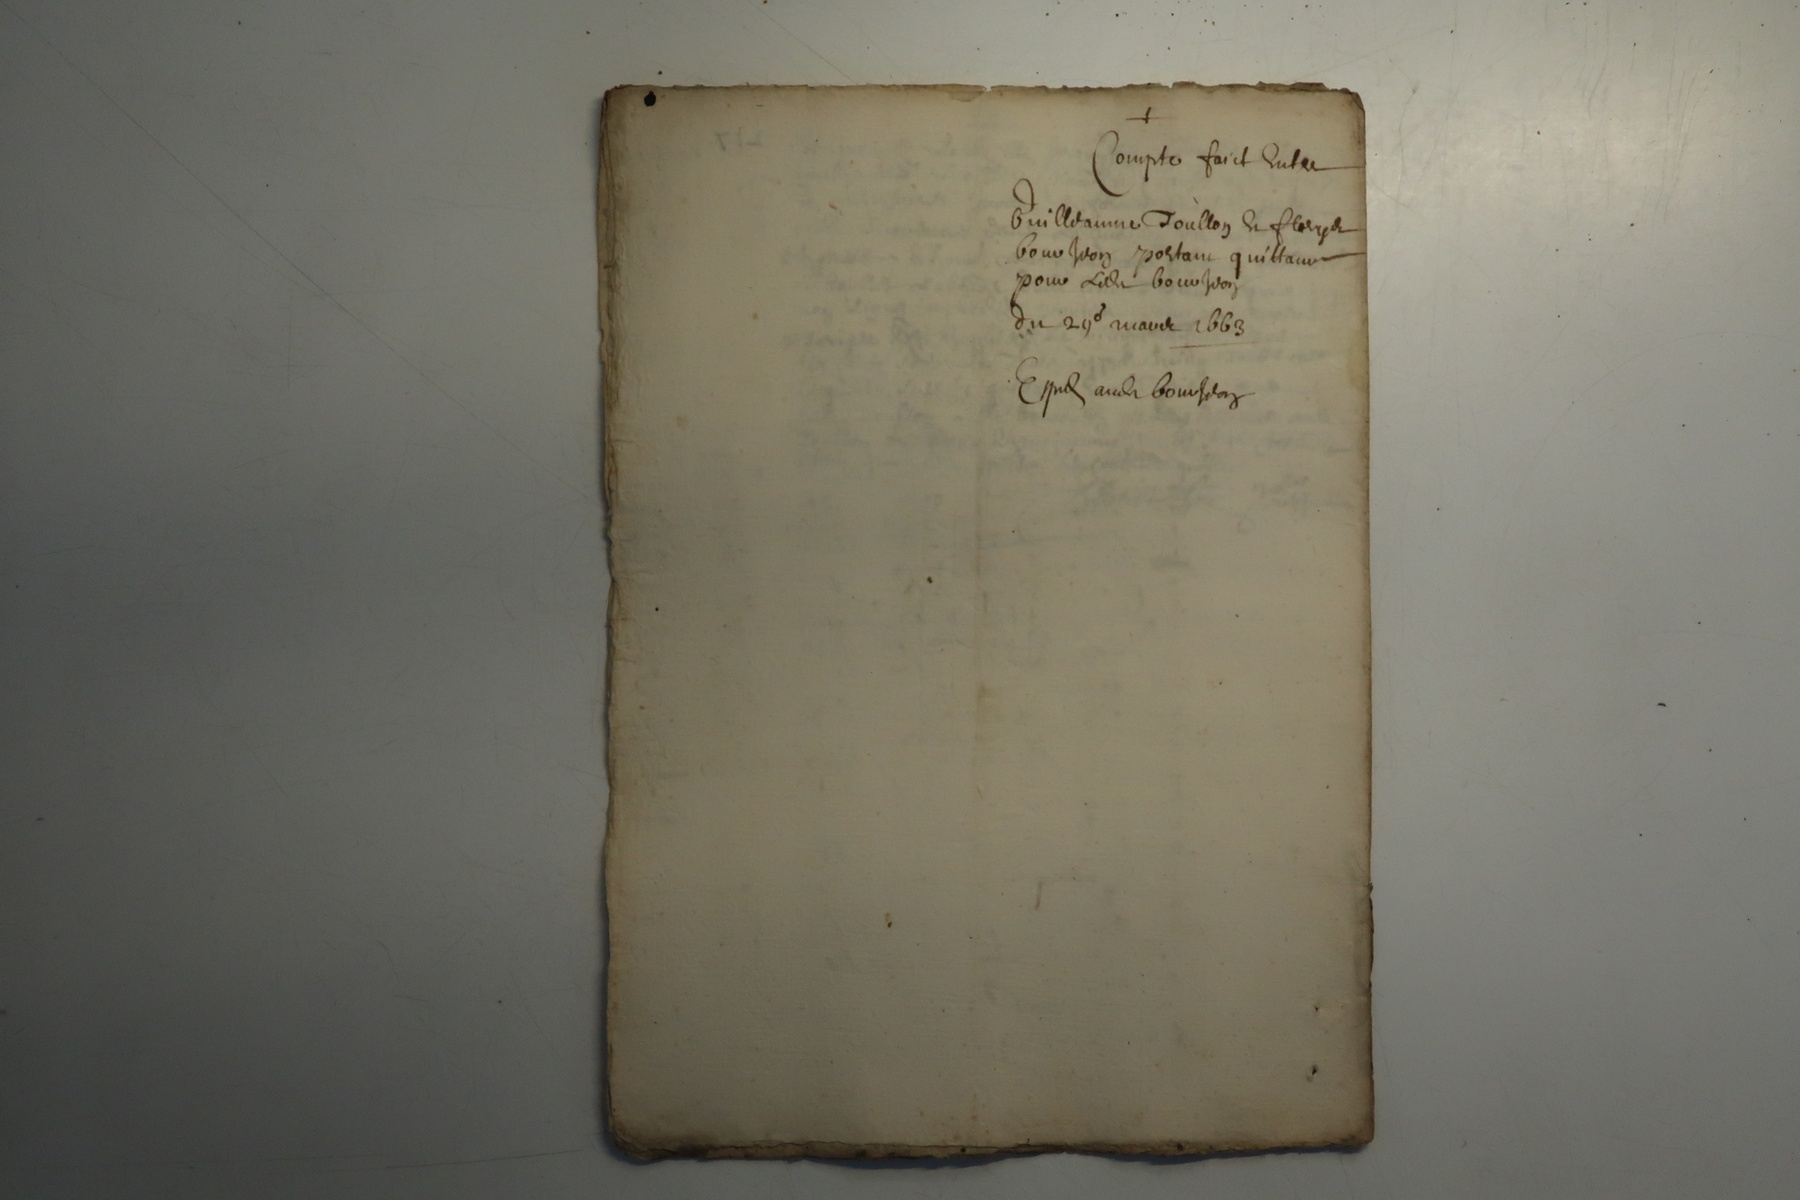 Compte faict Entre
Guilleaume Toullon Et fleurye
bourgeon portant quittance
pour Ledt bourgeon
du 29e mars 1663
Exped audt bourgeon